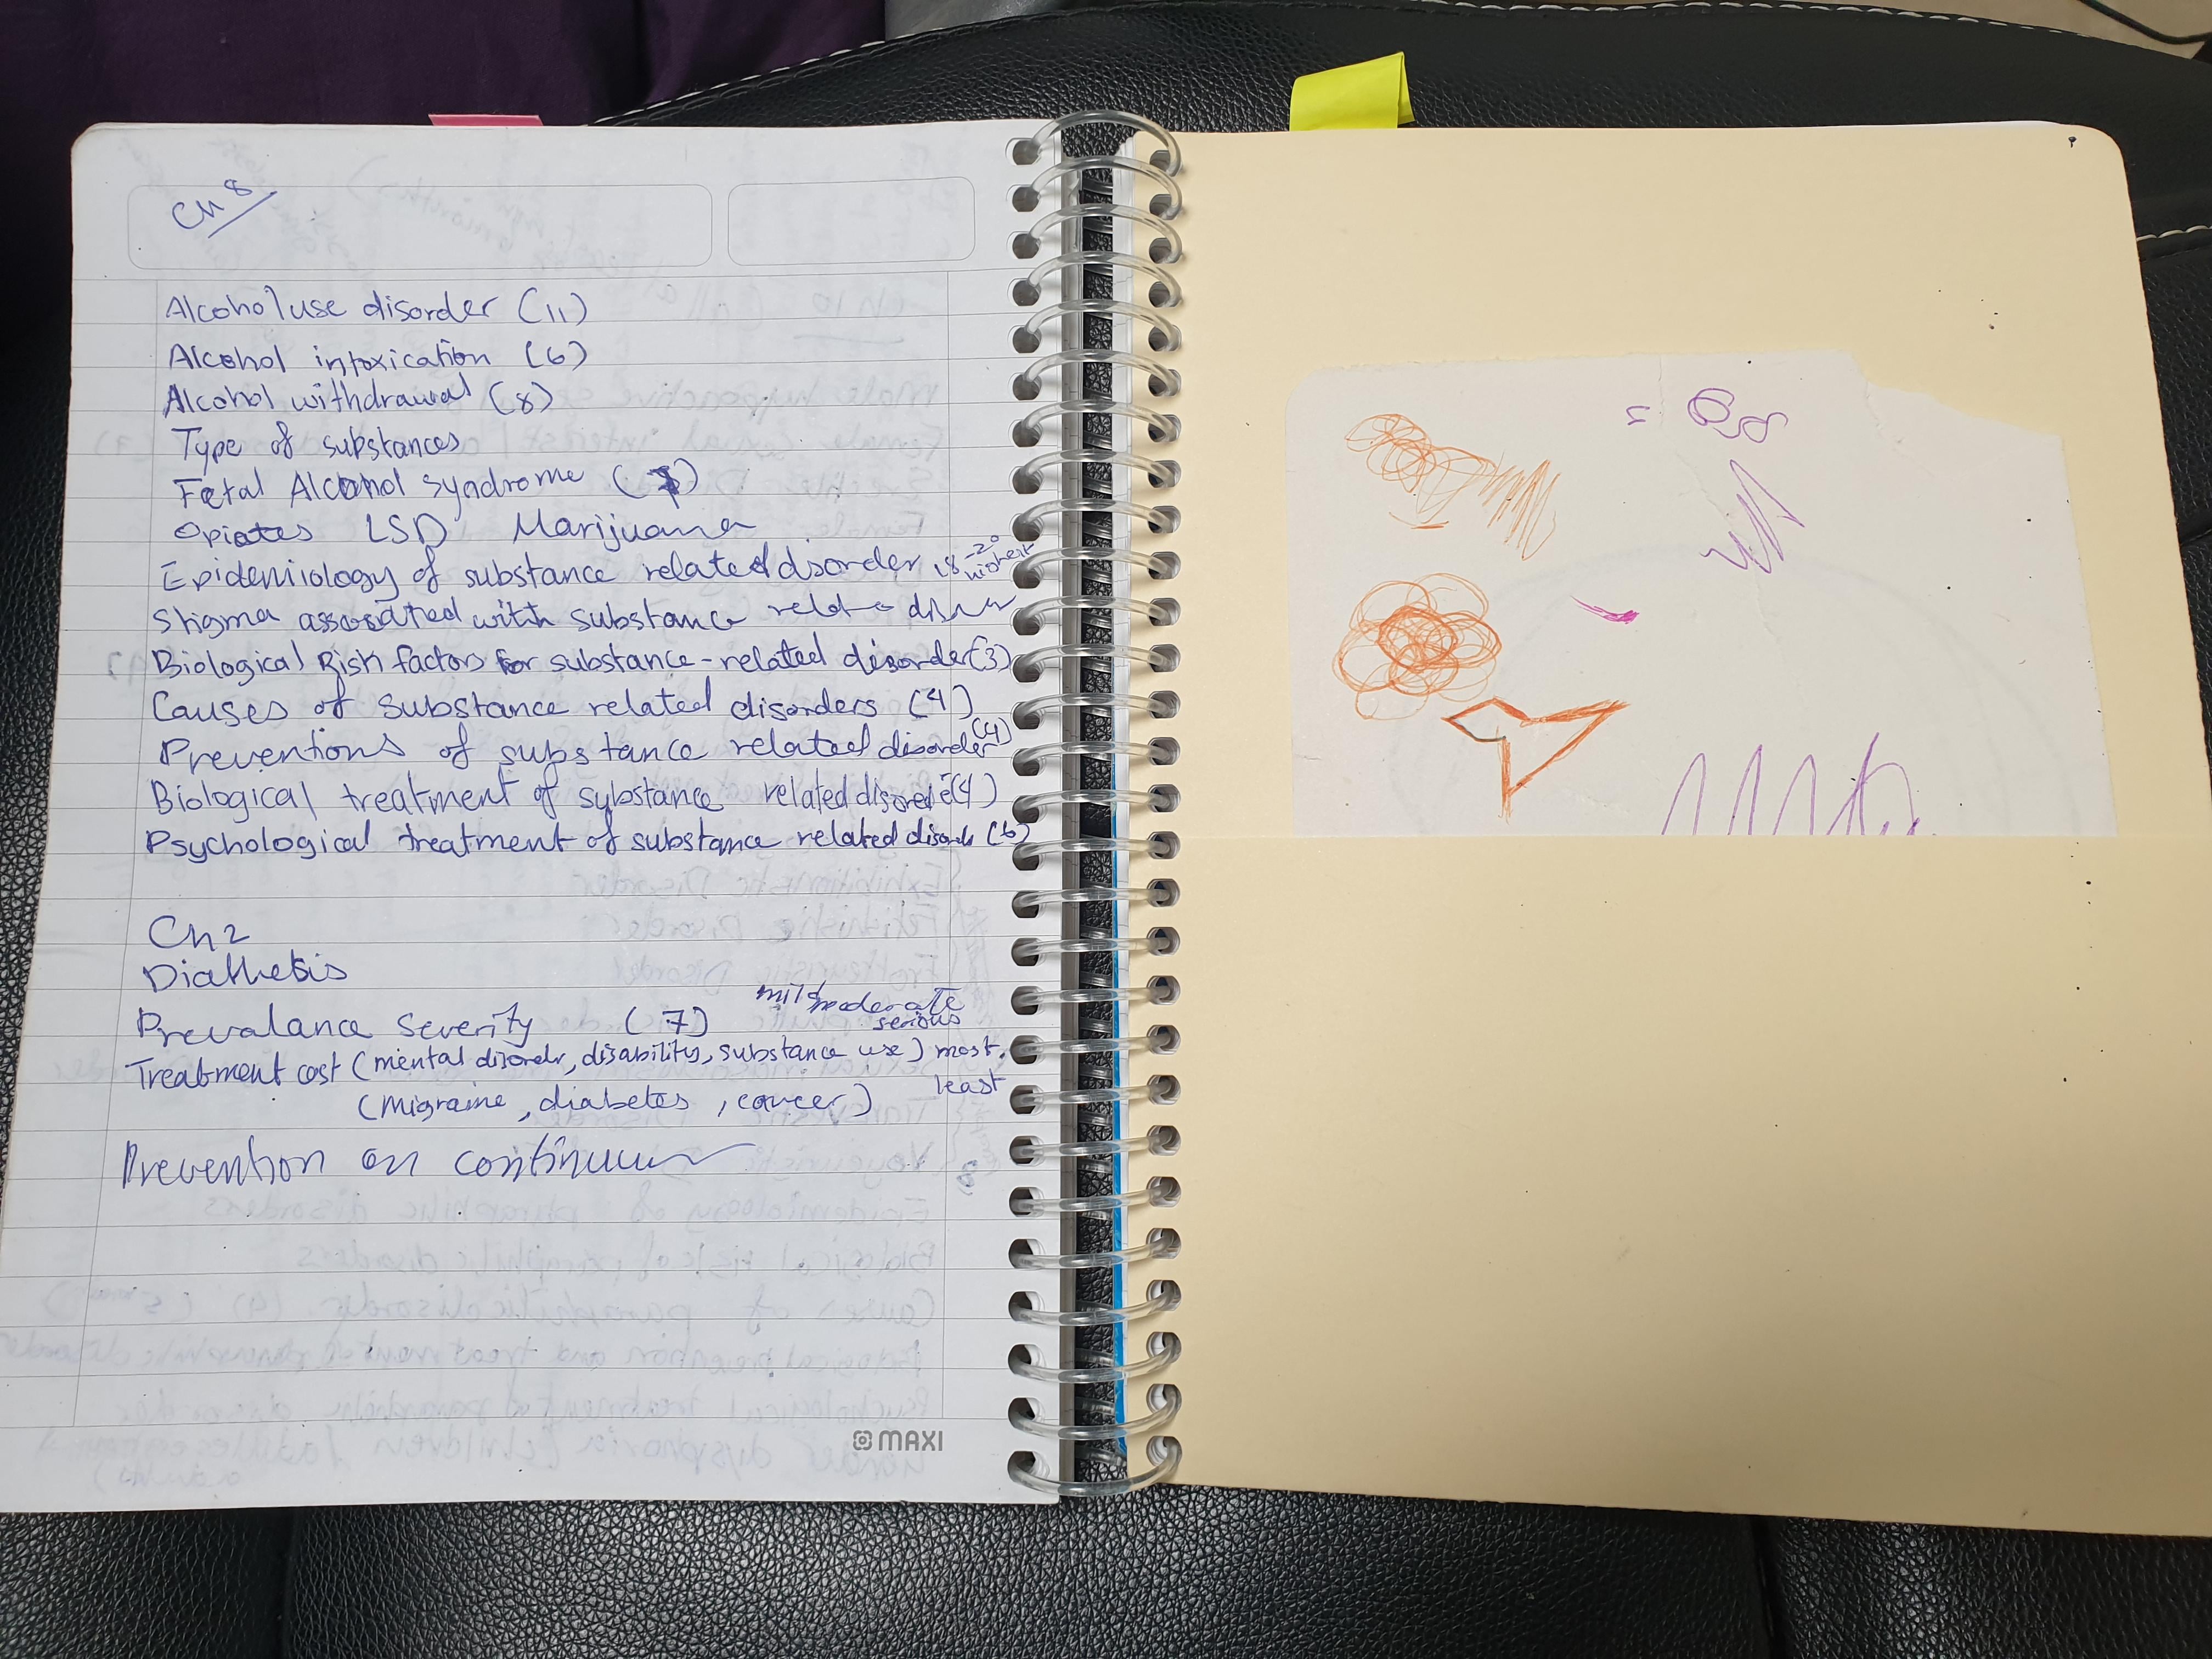 Ch 8
Alcohol use disorder (11)
Alcohol intoxication (6)
Alcohol withdrawal (8)
Type of substances
Fetal Alcohol syndrome ( )
Opiates LSD Marijuana
Epidemiology of substance related disorder 18-20 highest
Stigma associated with substance
Biological Risk factors for substance-related disorder (3)
Causes of substance related disorders (4)
Preventions of substance related disorder (4)
Biological treatment of substance related (4)
Psychological treatment of substance related (6)
Ch 2
Diathesis
Prevalance severity (7) mild moderate serious
Treatment cost (mental disorder, disability, substance use) most.
(migraine, diabetes, cancer) least
Prevention on continuum
MAXI